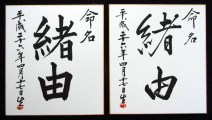 命名
緒由
平成二六年四月十七日生
命名
緒由
平成二六年四月十七日生